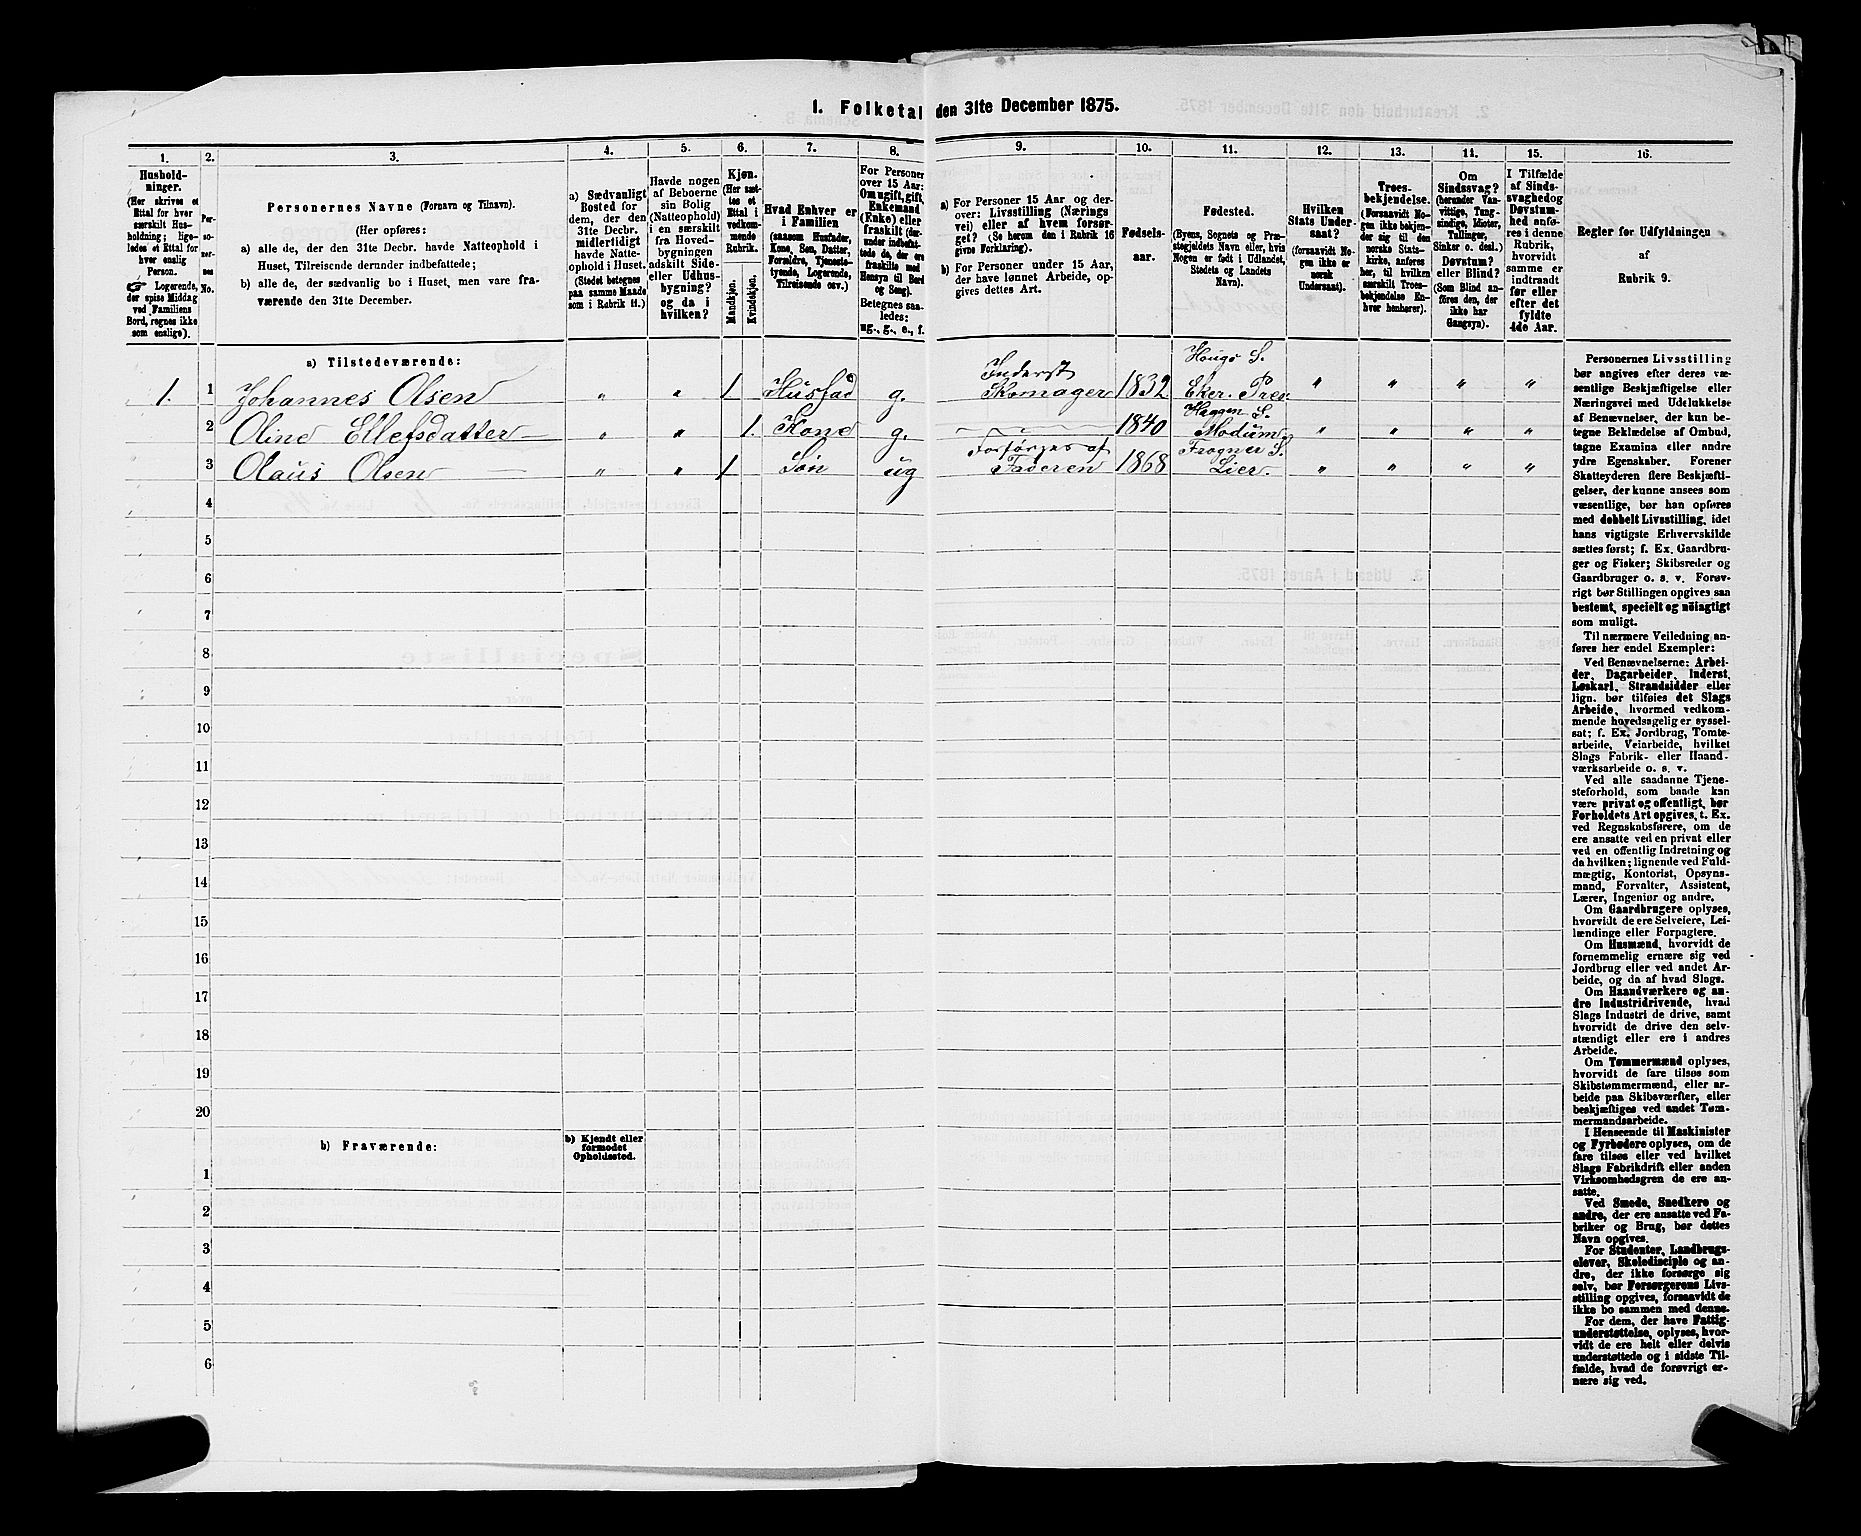 1. Folketal den 31te December 1875.
1.
2.
3.
4.
5.
6.
7.
8.
9.
10.
11.
12.
13.
14.
15.
16.
Hushold-
ninger.
(Her skrives et
Ettal for hver
særskilt Hus-
holdning; lige-
ledes et Ettal for
hver enslig
Person.
☞ Logerende,
der spise Middag
ved Familiens
Bord, regnes ikke
som enslige).
Per-
so-
ner-
nes
No.
Personernes Navne (Fornavn og Tilnavn).
(Her opføres:
a) alle de, der den 31te Decbr. havde Natteophold i
Huset, Tilreisende derunder indbefattede;
b) alle de, der sædvanlig bo i Huset, men vare fra-
værende den 31te December.
a) Sædvanligt
Bosted for
dem, der den
31te Decbr.
midlertidigt
havde Natte-
ophold i Huset.
(Stedet betegnes
paa samme Maade
som i Rubrik 11.)
Havde nogen
af Beboerne
sin Bolig
(Natteophold)
i en særskilt
fra Hoved-
bygningen
adskilt Side-
eller Udhus-
bygning?
og da i
hvilken?
Kjøn.
(Her sæt-
tes et
Ettal i
vedkom-
mende
Rubrik.
Mandkjøn.
Kvindekjøn.
Hvad Enhver er
i Familien
(saasom Husfader,
Kone, Søn, Datter,
Forældre, Tjeneste-
tyende, Logerende,
Tilreisende osv.)
For Personer
over 15 Aar:
Om ugift, gift,
Enkemand
(Enke) eller
fraskilt (der-
under indbefat-
tede de, der ere
fraskilte med
Hensyn til Bord
og Seng).
Betegnes saa-
ledes:
ug., g., e., f.
a) For Personer 15 Aar og der-
over: Livsstilling (Nærings
vei) eller af hvem forsør-
get? (Se herom den i Rubrik 16
givne Forklaring).
b) For Personer under 15 Aar,
der have lønnet Arbeide, op-
gives dettes Art.
Fødsels-
aar.
Fødested.
(Byens, Sognets og Præ-
stegjeldets Navn eller, hvis
Nogen er født i Udlandet,
Stedets og Landets
Navn).
Hvilken
Stats Under-
saat?
(forsaavidt No-
gen ikke er
norsk
Undersaat).
Troes-
bekjendelse.
(Forsaavidt No-
gen ikke bekjen-
der sig til den
norske Stats-
kirke, anføres
her, til hvilken
særskilt Troes-
bekjendelse En-
hver henhører).
Om
Sindssvag?
(herunder Van-
vittige, Tung-
sindige, Idioter,
Tullinger,
Sinker o. desl.)
Døvstum?
eller Blind?
(Som Blind an-
føres den, der
ikke har
Gangsyn).
I Tilfælde
af Sinds-
svaghed og
Døvstum-
hed anfø-
res i denne
Rubrik,
hvorvidt
samme er
indtraadt
før eller
efter det
fyldte
4de Aar.
Regler for Udfyldningen
af
Rubrik 9.
a) Tilstedeværende:
1. 1 Johannes Olsen " " 1 Husfad g. Inderst Skomager 1832 Hougs S. Eker. Præ. " " " "
2 Oline Ellefsdatter " " 1. Kone g. 1840 Heggen S. Modum " " " "
3 Olaus Olsen " " 1 Søn ug Forsørges af Faderen 1868 Frogner S. Lier. " " " "
4
5
6
7
8
9
10
11
12
13
14
15
16
17
18
19
20
b) Fraværende:
b) Kjendt eller
formodet
Opholdssted.
1
2
3
4
5
6
Personernes Livsstilling
bør angives efter deres væ-
sentlige Beskjæftigelse eller
Næringsvei med Udelukkelse
af Benævnelser, der kun be-
tegne Beklædelse af Ombud,
tagne Examina eller andre
ydre Egenskaber. Forener
Skatteyderen flere Beskjæfti-
gelser, der kunne ansees som
væsentlige, bør han opføres
med dobbelt Livsstilling, idet
hans vigtigste Erhvervskilde
sættes først; f. Ex. Gaardbru-
ger og Fisker; Skibsreder og
Gaardbruger o. s. v. Forøv-
rigt bør Stillingen opgives saa
bestemt, specielt og nöiagtigt
som muligt.
Til nærmere Veiledning an-
føres her endel Exempler:
Ved Benævnelserne: Arbei-
der, Dagarbeider, Inderst,
Løskarl, Strandsidder eller
lign. bør tilføies det Slags
Arbeide, hvormed vedkom-
mende hovedsagelig er syssel-
sat; f. Ex. Jordbrug, Tomte-
arbeide, Veiarbeide, hvilket
Slags Fabrik- eller Haand-
værksarbeide o. s. v.
Ved alle saadanne Tjene-
steforhold, som baade kan
være privat og offentligt, bør
Forholdets Art opgives, t. Ex.
ved Regnskabsførere, om de
ere ansatte ved en privat eller
ved en offentlig Indretning og
da hvilken; lignende ved Fuld-
mægtig, Kontorist, Opsyns-
mand, Forvalter, Assistent,
Lærer, Ingeniør og andre.
Om Gaardbrugere oplyses,
hvorvidt de ere Selveiere, Lei-
lændinge eller Forpagtere.
Om Husmænd, hvorvidt de
fornemmelig ernære sig ved
Jordbrug eller ved andet Ar-
beide, og da af hvad Slags.
Om Haandværkere og an-
dre Industridrivende, hvad
Slags Industri de drive, samt
hvorvidt de drive den selv-
stændigt eller ere i andres
Arbeide.
Om Tømmermænd oplyses,
hvorvidt de fare tilsøs som
Skibstømmermænd, eller ar-
beide paa Skibsværfter, eller
beskjæftiges ved andet Tøm-
mermandsarbeide.
I Henseende til Maskinister
og Fyrbødere oplyses, om de
fare tilsøs eller ved hvilket
Slags Fabrikdrift eller anden
Virksomhedsgren de ere an-
satte.
Ved Smede, Snedkere og
andre, der ere ansatte ved Fa-
briker og Brug, bør dettes
Navn opgives.
For Studenter, Landbrugs-
elever, Skoledisciple og an-
dre, der ikke forsørge sig
selv, bør Forsørgerens Livs-
stilling opgives, forsaavidt de
ikke bo sammen med denne.
For dem, der have Fattig-
understøttelse, oplyses, hvor-
vidt de ere helt eller delvis
understøttede og i sidste Til-
fælde, hvad de forøvrigt er-
nære sig ved.